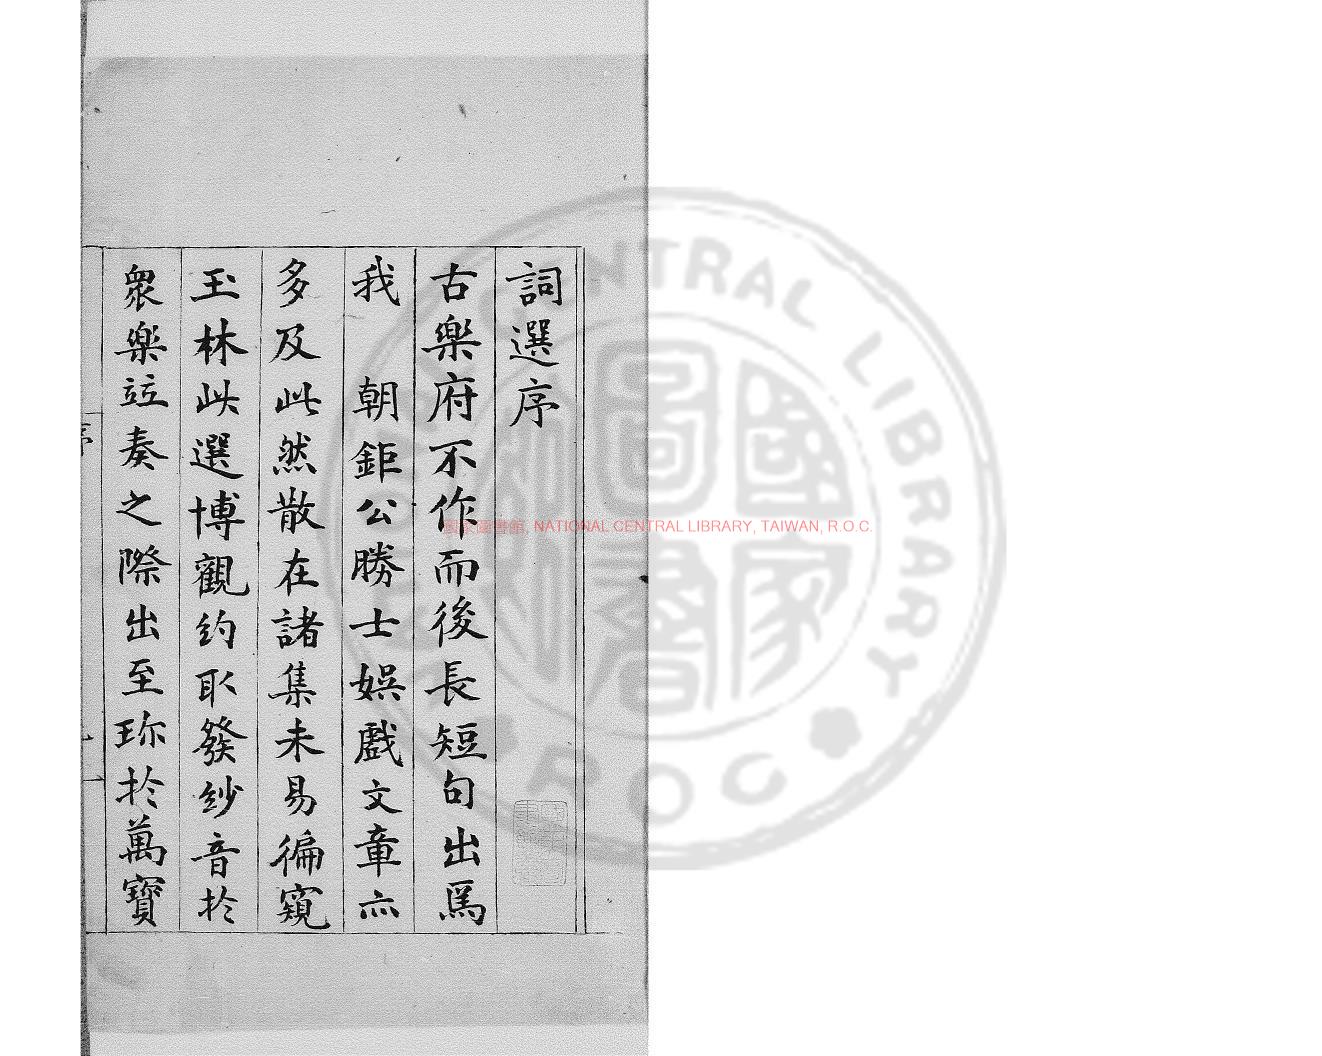 詞選序
古樂府不作而後長短句出焉
我 朝鉅公勝士娛戲文章亦
多及此然散在諸集未易徧窺
玉林此選博觀約取發紗音於
衆樂竝奏之際出至珎於萬寶
序
國家圖書館, NATIONAL CENTRAL LIBRARY, TAIWAN, R.O.C.
CENTRAL LIBRARY
ROC
圖
國家
書